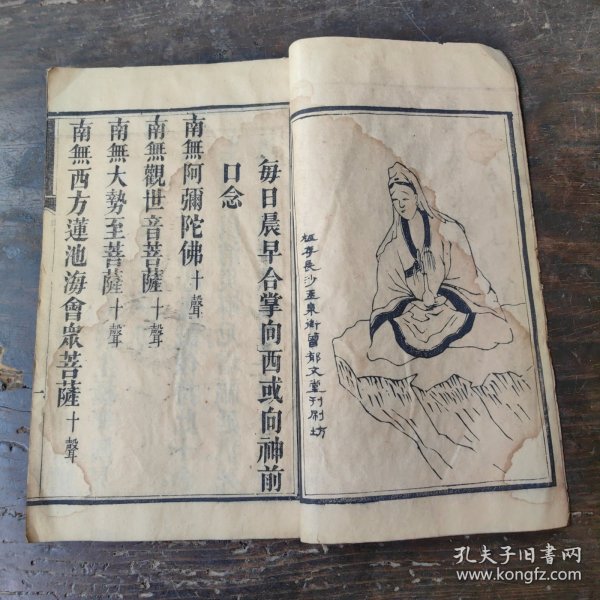 板存長沙玉泉街曾郁文堂刊刷坊
每日晨早合掌向西或向神前
口念
南無阿彌陀佛十聲
南無觀世音菩薩十聲
南無大勢至菩薩十聲
南無西方蓮池海會眾菩薩十聲
孔夫子旧书网
www.kongfz.com